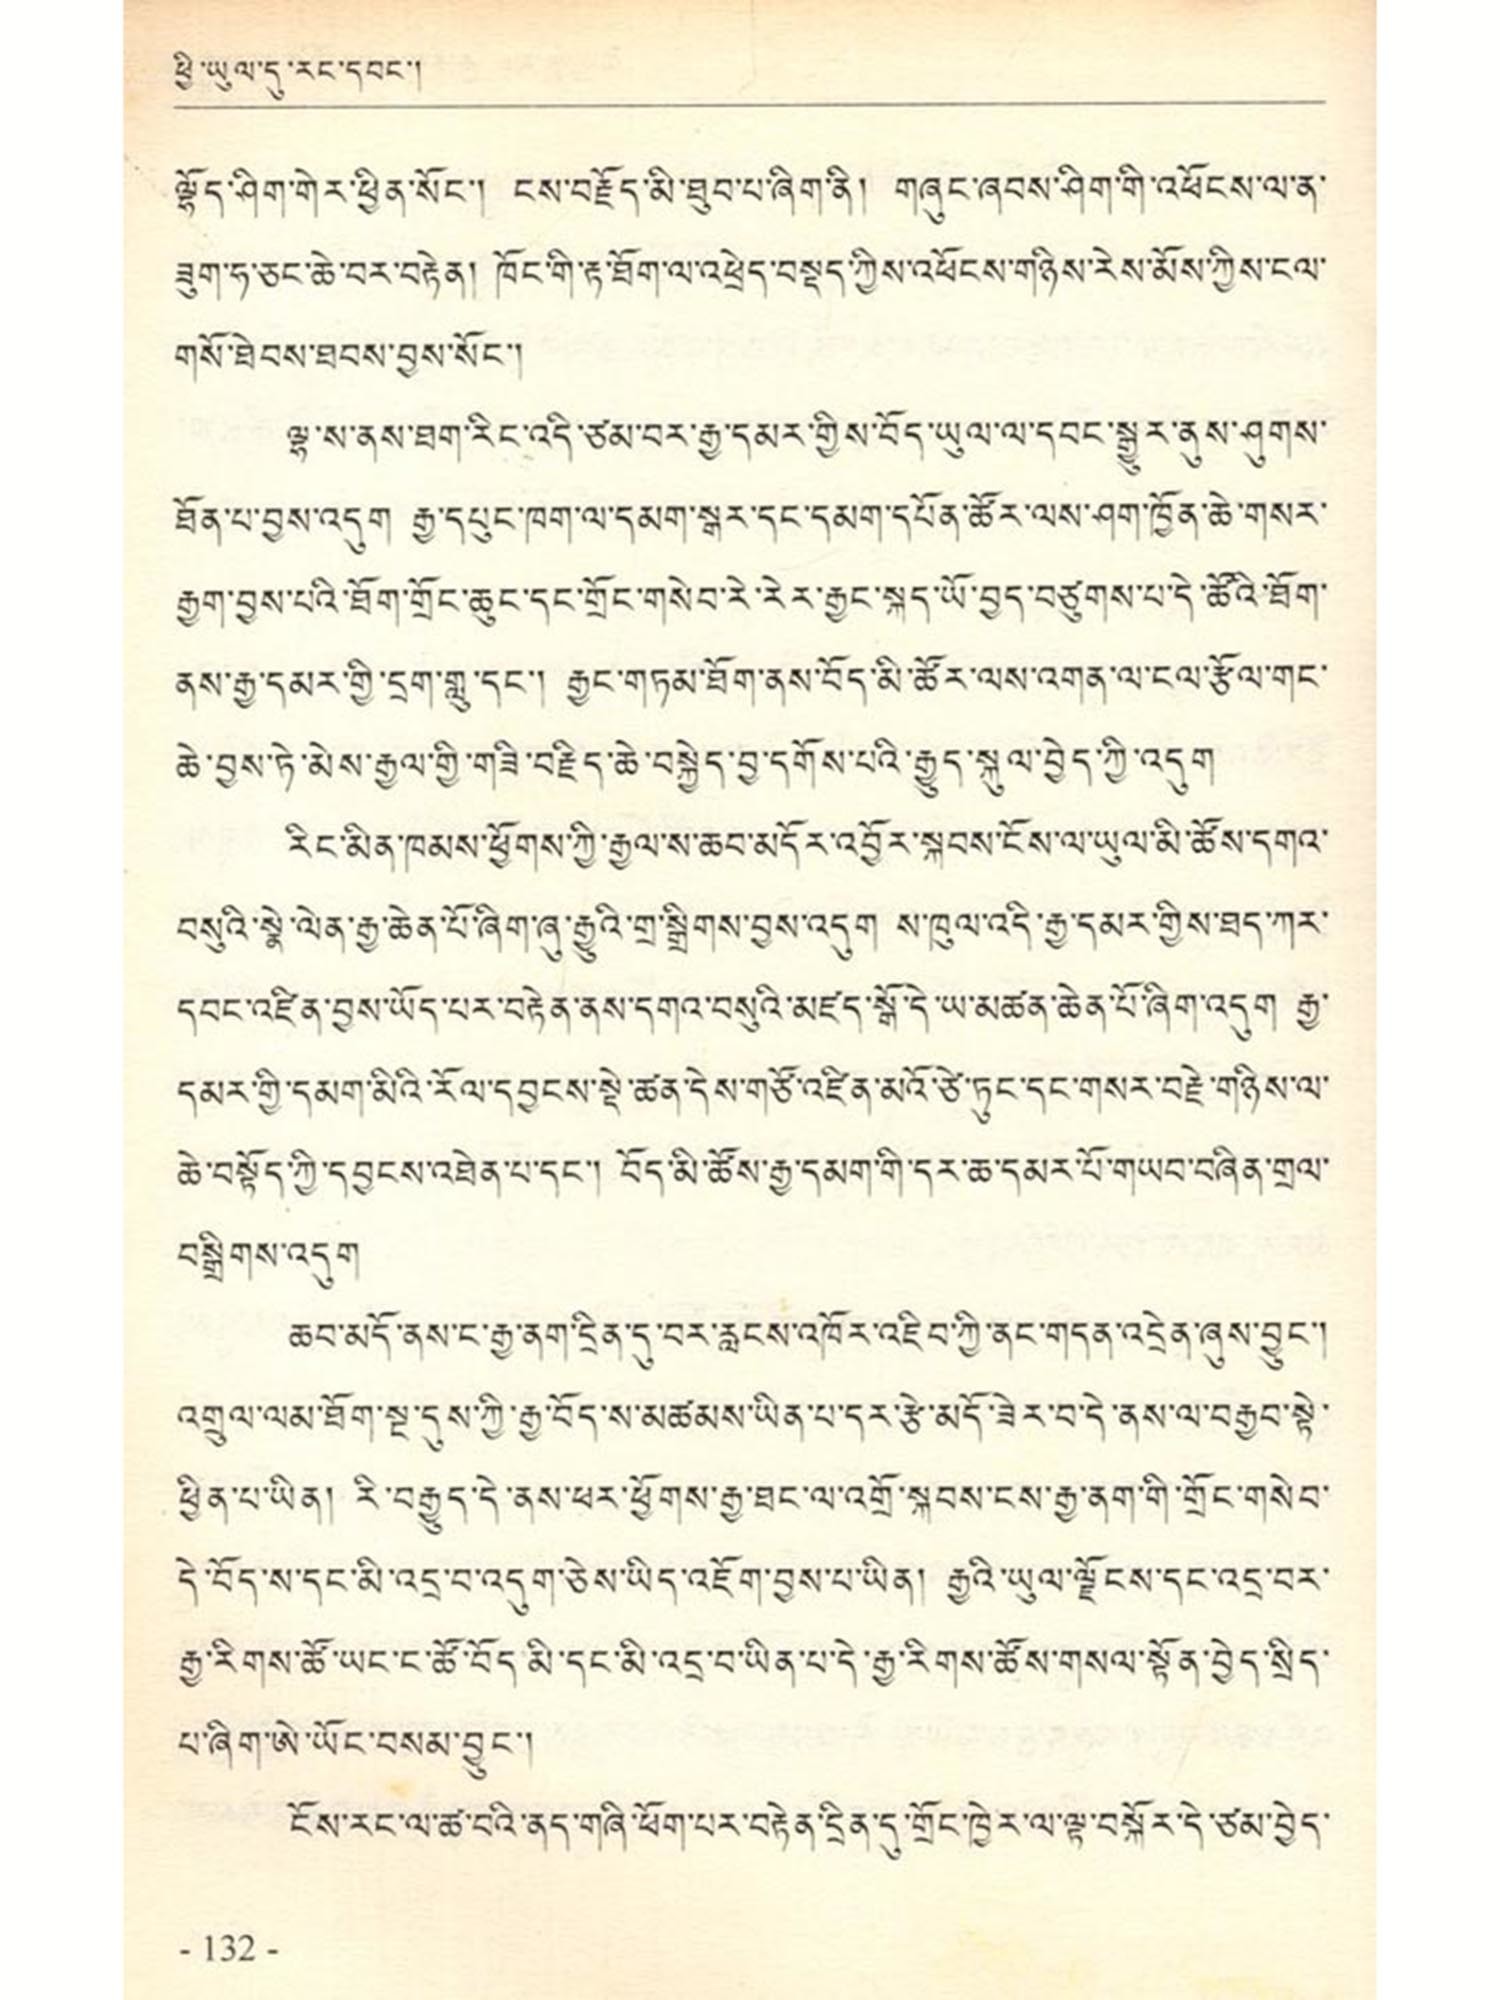 ཕྱི་ཡུལ་དུ་རང་དབང་།
ལྷོད་ཤིག་གེར་ཕྱིན་སོང་། ངས་བརྗོད་མི་ཐུབ་པ་ཞིག་ནི། གཞུང་ཞབས་ཤིག་གི་འཕོངས་ལ་ན་
ཟུག་ཧ་ཅང་ཆེ་བར་བརྟེན། ཁོང་གི་རྟ་ཐོག་ལ་འཕྲེད་བསྡད་ཀྱིས་འཕོངས་གཉིས་རེས་མོས་ཀྱིས་ངལ་
གསོ་ཐེབས་ཐབས་བྱས་སོང་།
ལྷ་ས་ནས་ཐག་རིང་འདི་ཙམ་བར་རྒྱ་དམར་གྱིས་བོད་ཡུལ་ལ་དབང་སྒྱུར་ནུས་ཤུགས་
ཐོན་པ་བྱས་འདུག རྒྱ་དཔུང་ཁག་ལ་དམག་སྒར་དང་དམག་དཔོན་ཚོར་ལས་ཤག་ཁྲོན་ཆེ་གསར་
རྒྱག་བྱས་པའི་ཐོག་གྲོང་ཆུང་དང་གྲོང་གསེབ་རེ་རེར་རྒྱང་སྐད་ཡོ་བྱད་བཙུགས་པ་དེ་ཚོའི་ཐོག་
ནས་རྒྱ་དམར་གྱི་དྲག་གླུ་དང་། རྒྱང་གཏམ་ཐོག་ནས་བོད་མི་ཚོར་ལས་འགན་ལ་ངལ་རྩོལ་གང་
ཆེ་བྱས་ཏེ་མེས་རྒྱལ་གྱི་གཟི་བརྗིད་ཆེ་བསྐྱེད་བྱ་དགོས་པའི་རྒྱུད་སྐུལ་བྱེད་ཀྱི་འདུག
རིང་མིན་ཁམས་ཕྱོགས་ཀྱི་རྒྱལ་ས་ཆབ་མདོར་འབྱོར་སྐབས་ངོས་ལ་ཡུལ་མི་ཚོས་དགའ་
བསུའི་སྣེ་ལེན་རྒྱ་ཆེན་པོ་ཞིག་ཞུ་རྒྱུའི་གྲ་སྒྲིགས་བྱས་འདུག ས་ཁུལ་འདི་རྒྱ་དམར་གྱིས་ཐད་ཀར་
དབང་འཛིན་བྱས་ཡོད་པར་བརྟེན་ནས་དགའ་བསུའི་མཛད་སྒོ་དེ་ཡ་མཚན་ཆེན་པོ་ཞིག་འདུག རྒྱ་
དམར་གྱི་དམག་མིའི་རོལ་དབྱངས་སྡེ་ཚན་དེས་གཙོ་འཛིན་མའོ་ཙེ་ཏུང་དང་གསར་བརྗེ་གཉིས་ལ་
ཆེ་བསྟོད་ཀྱི་དབྱངས་འཐེན་པ་དང་། བོད་མི་ཚོས་རྒྱ་དམག་གི་དར་ཆ་དམར་པོ་གཡབ་བཞིན་གྲལ་
བསྒྲིགས་འདུག
ཆབ་མདོ་ནས་ང་རྒྱ་ནག་ཁྲིན་དུ་བར་རླངས་འཁོར་འཇིབ་ཀྱི་ནང་གདན་འདྲེན་ཞུས་བྱུང་།
འགྲུལ་ལམ་ཐོག་སྔ་དུས་ཀྱི་རྒྱ་བོད་ས་མཚམས་ཡིན་པ་དར་རྩེ་མདོ་ཟེར་བ་དེ་ནས་ལ་བརྒྱབ་སྟེ་
ཕྱིན་པ་ཡིན། རི་བརྒྱུད་དེ་ནས་ཕར་ཕྱོགས་རྒྱ་ཐང་ལ་འགྲོ་སྐབས་ངས་རྒྱ་ནག་གི་གྲོང་གསེབ་
དེ་བོད་ས་དང་མི་འདྲ་བ་འདུག་ཅེས་ཡིད་འཇོག་བྱས་པ་ཡིན། རྒྱའི་ཡུལ་ལྗོངས་དང་འདྲ་བར་
རྒྱ་རིགས་ཚོ་ཡང་ང་ཚོ་བོད་མི་དང་མི་འདྲ་བ་ཡིན་པ་དེ་རྒྱ་རིགས་ཚོས་གསལ་སྟོན་བྱེད་སྲིད་
པ་ཞིག་ཨེ་ཡོང་བསམ་བྱུང་།
ངོས་རང་ལ་ཚ་བའི་ནད་གཞི་ཕོག་པར་བརྟེན་ཁྲིན་དུ་གྲོང་ཁྱེར་ལ་ལྟ་བསྐོར་དེ་ཙམ་བྱེད་
- 132 -